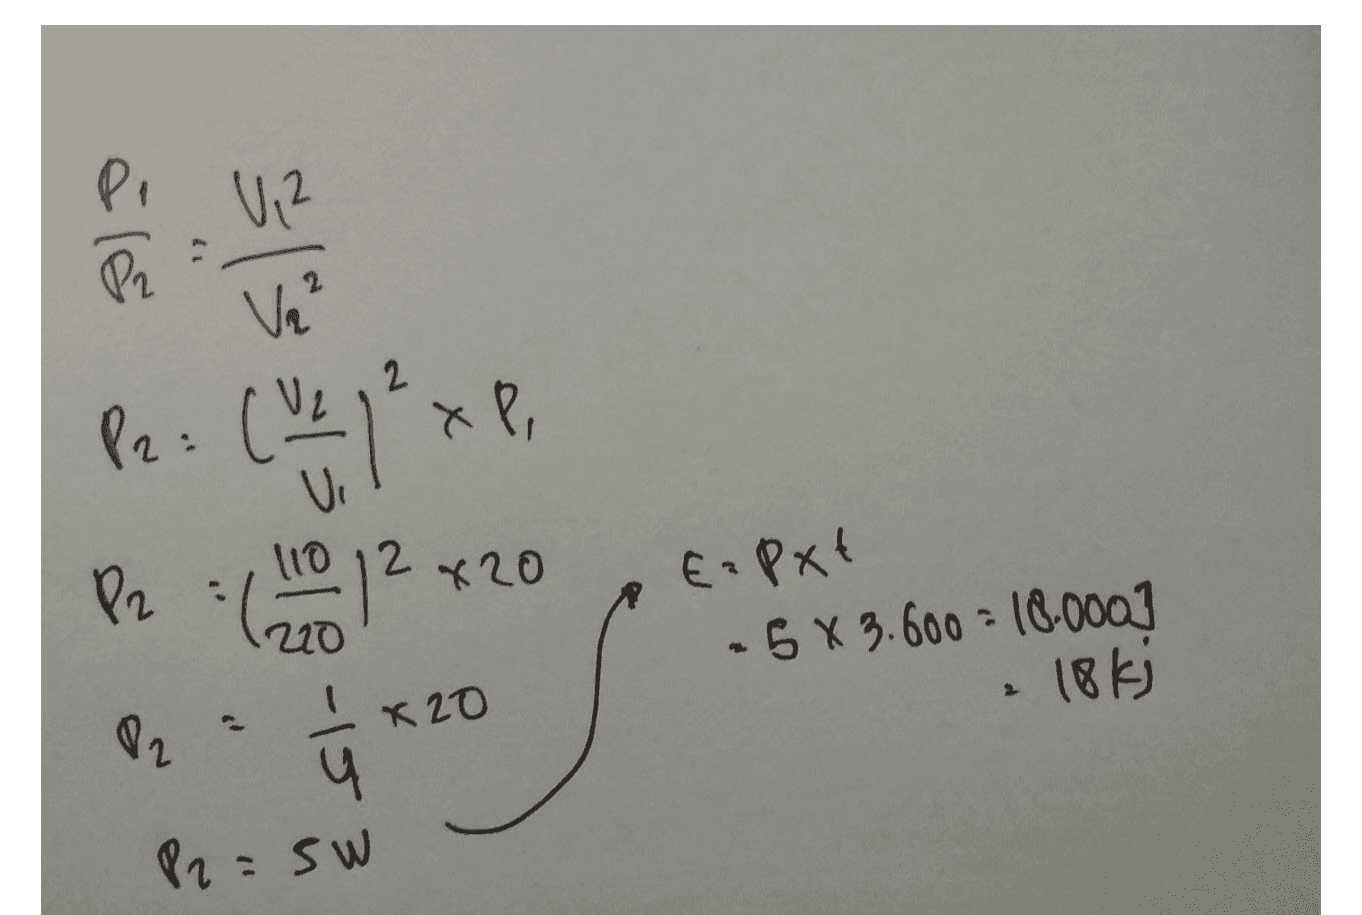 P₁/P₂ = V₁²/V₂²
P₂ = (V₂/V₁)² × P₁
P₂ = (110/220)² × 20
P₂ = 1/4 × 20
P₂ = 5 W
E = P × t
= 5 × 3.600 = 18.000 J
= 18 kj